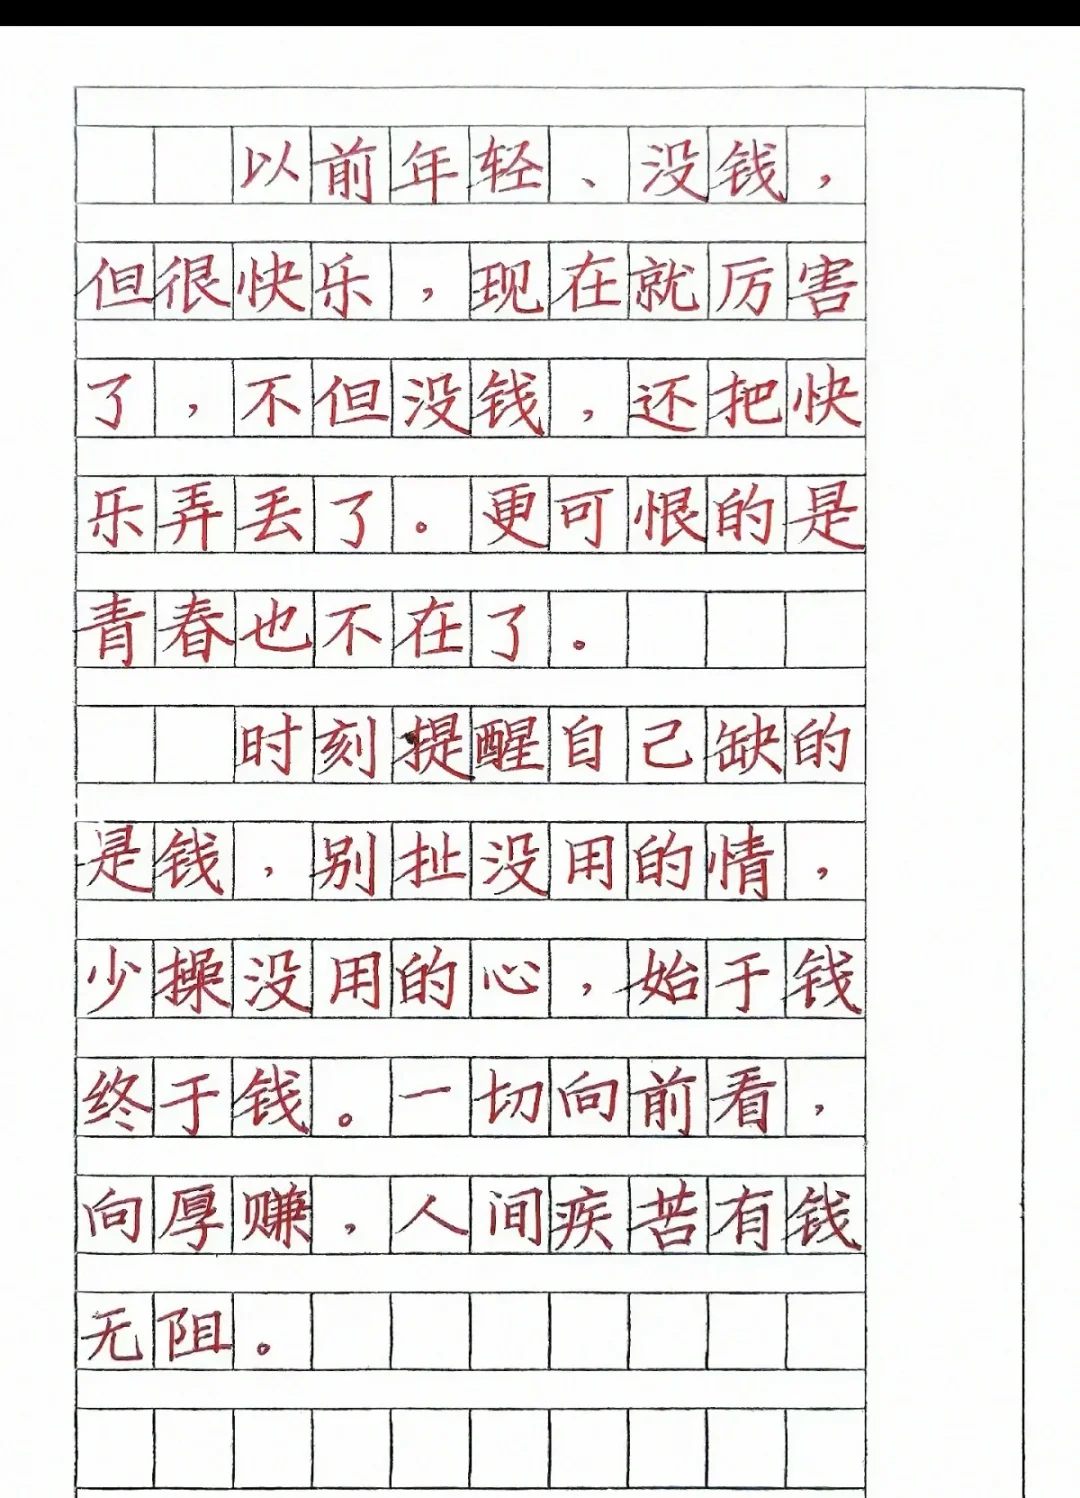 以前年轻、没钱，
但很快乐，现在就厉害
了，不但没钱，还把快
乐弄丢了。更可恨的是
青春也不在了。
时刻提醒自己缺的
是钱，别扯没用的情，
少操没用的心，始于钱
终于钱。一切向前看，
向厚赚，人间疾苦有钱
无阻。